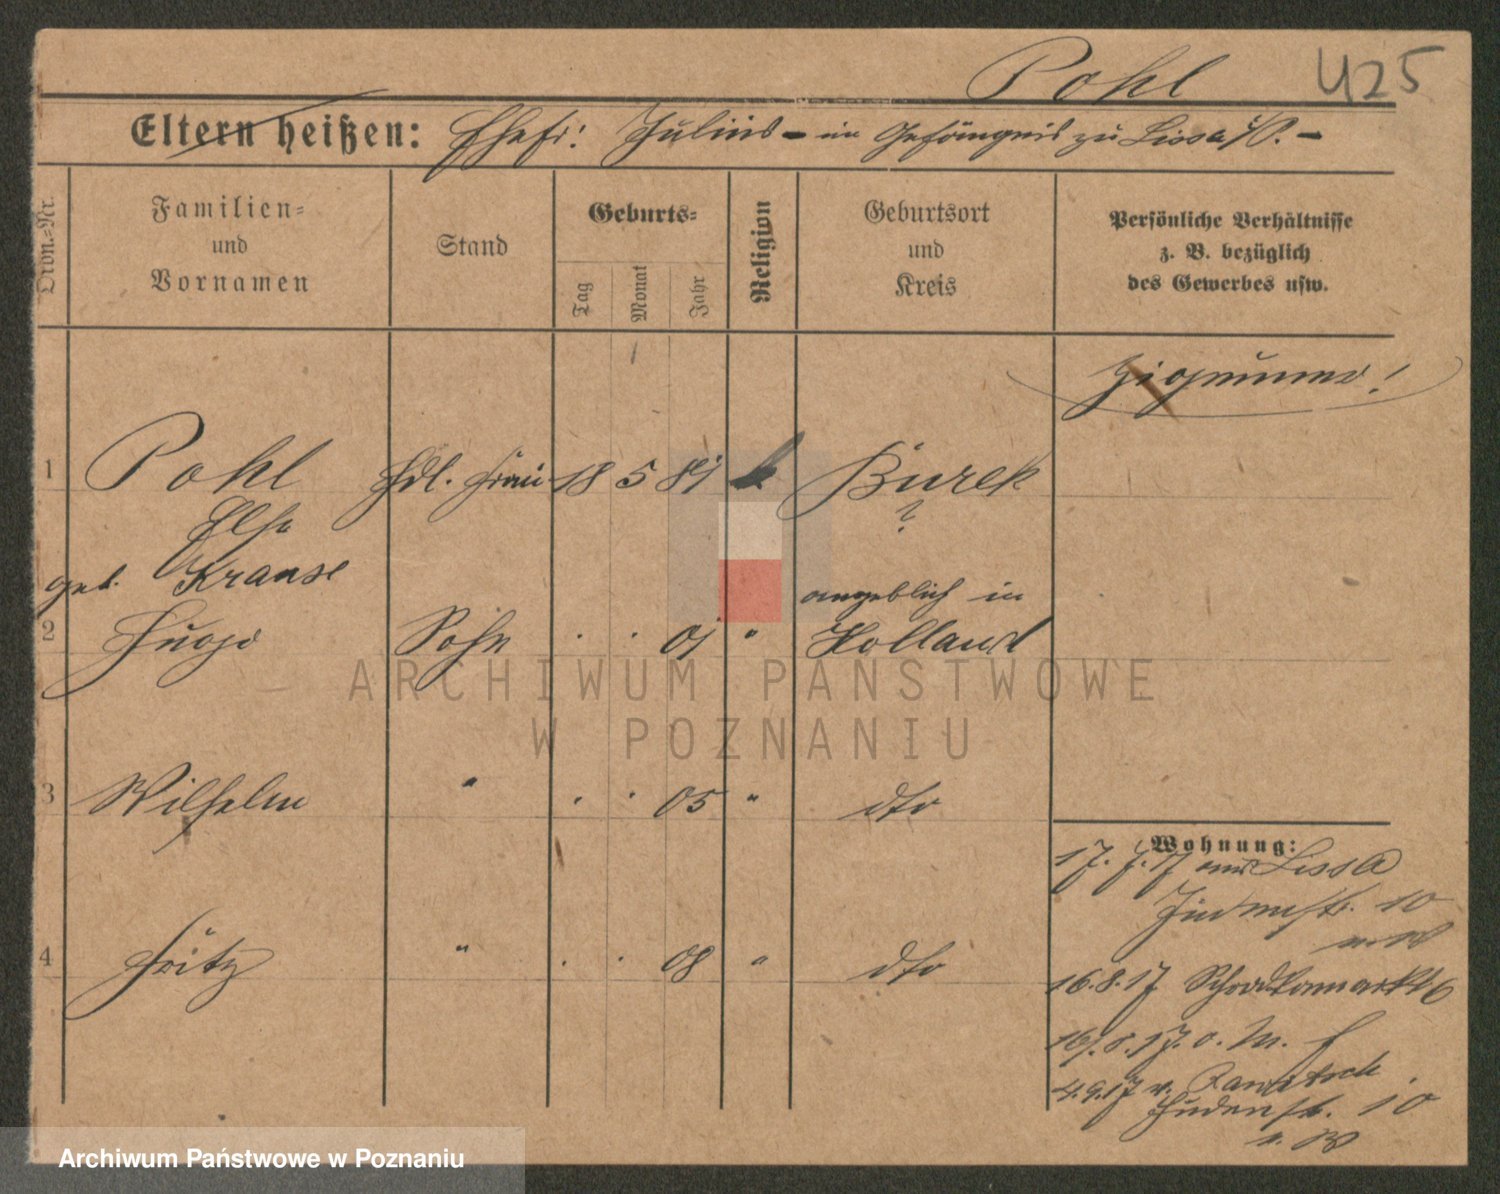 Pohl 425
Eltern heißen: Ehefr: Julius – im Gefängnis zu Lissa i/P. –
Ordn.-Nr.
Familien-
und
Vornamen
Stand
Geburts-
Tag
Monat
Jahr
Religion
Geburtsort
und
Kreis
Persönliche Verhältnisse
z. B. bezüglich
des Gewerbes usw.
Zigeuner!
1 Pohl Hdl. Frau 18 5 81 k. Burek
Else ?
geb. Krause angeblich in
2 Hugo Sohn . . 01 " Holland
3 Wilhelm " . . 05 " dto
4 Fritz " . . 08 " dto
Wohnung:
17. 7. 17 aus Lissa
Judenstr. 10
16.8.17
4.9.17 v.
Judenstr. 10
ARCHIWUM PAŃSTWOWE
W POZNANIU
Archiwum Państwowe w Poznaniu